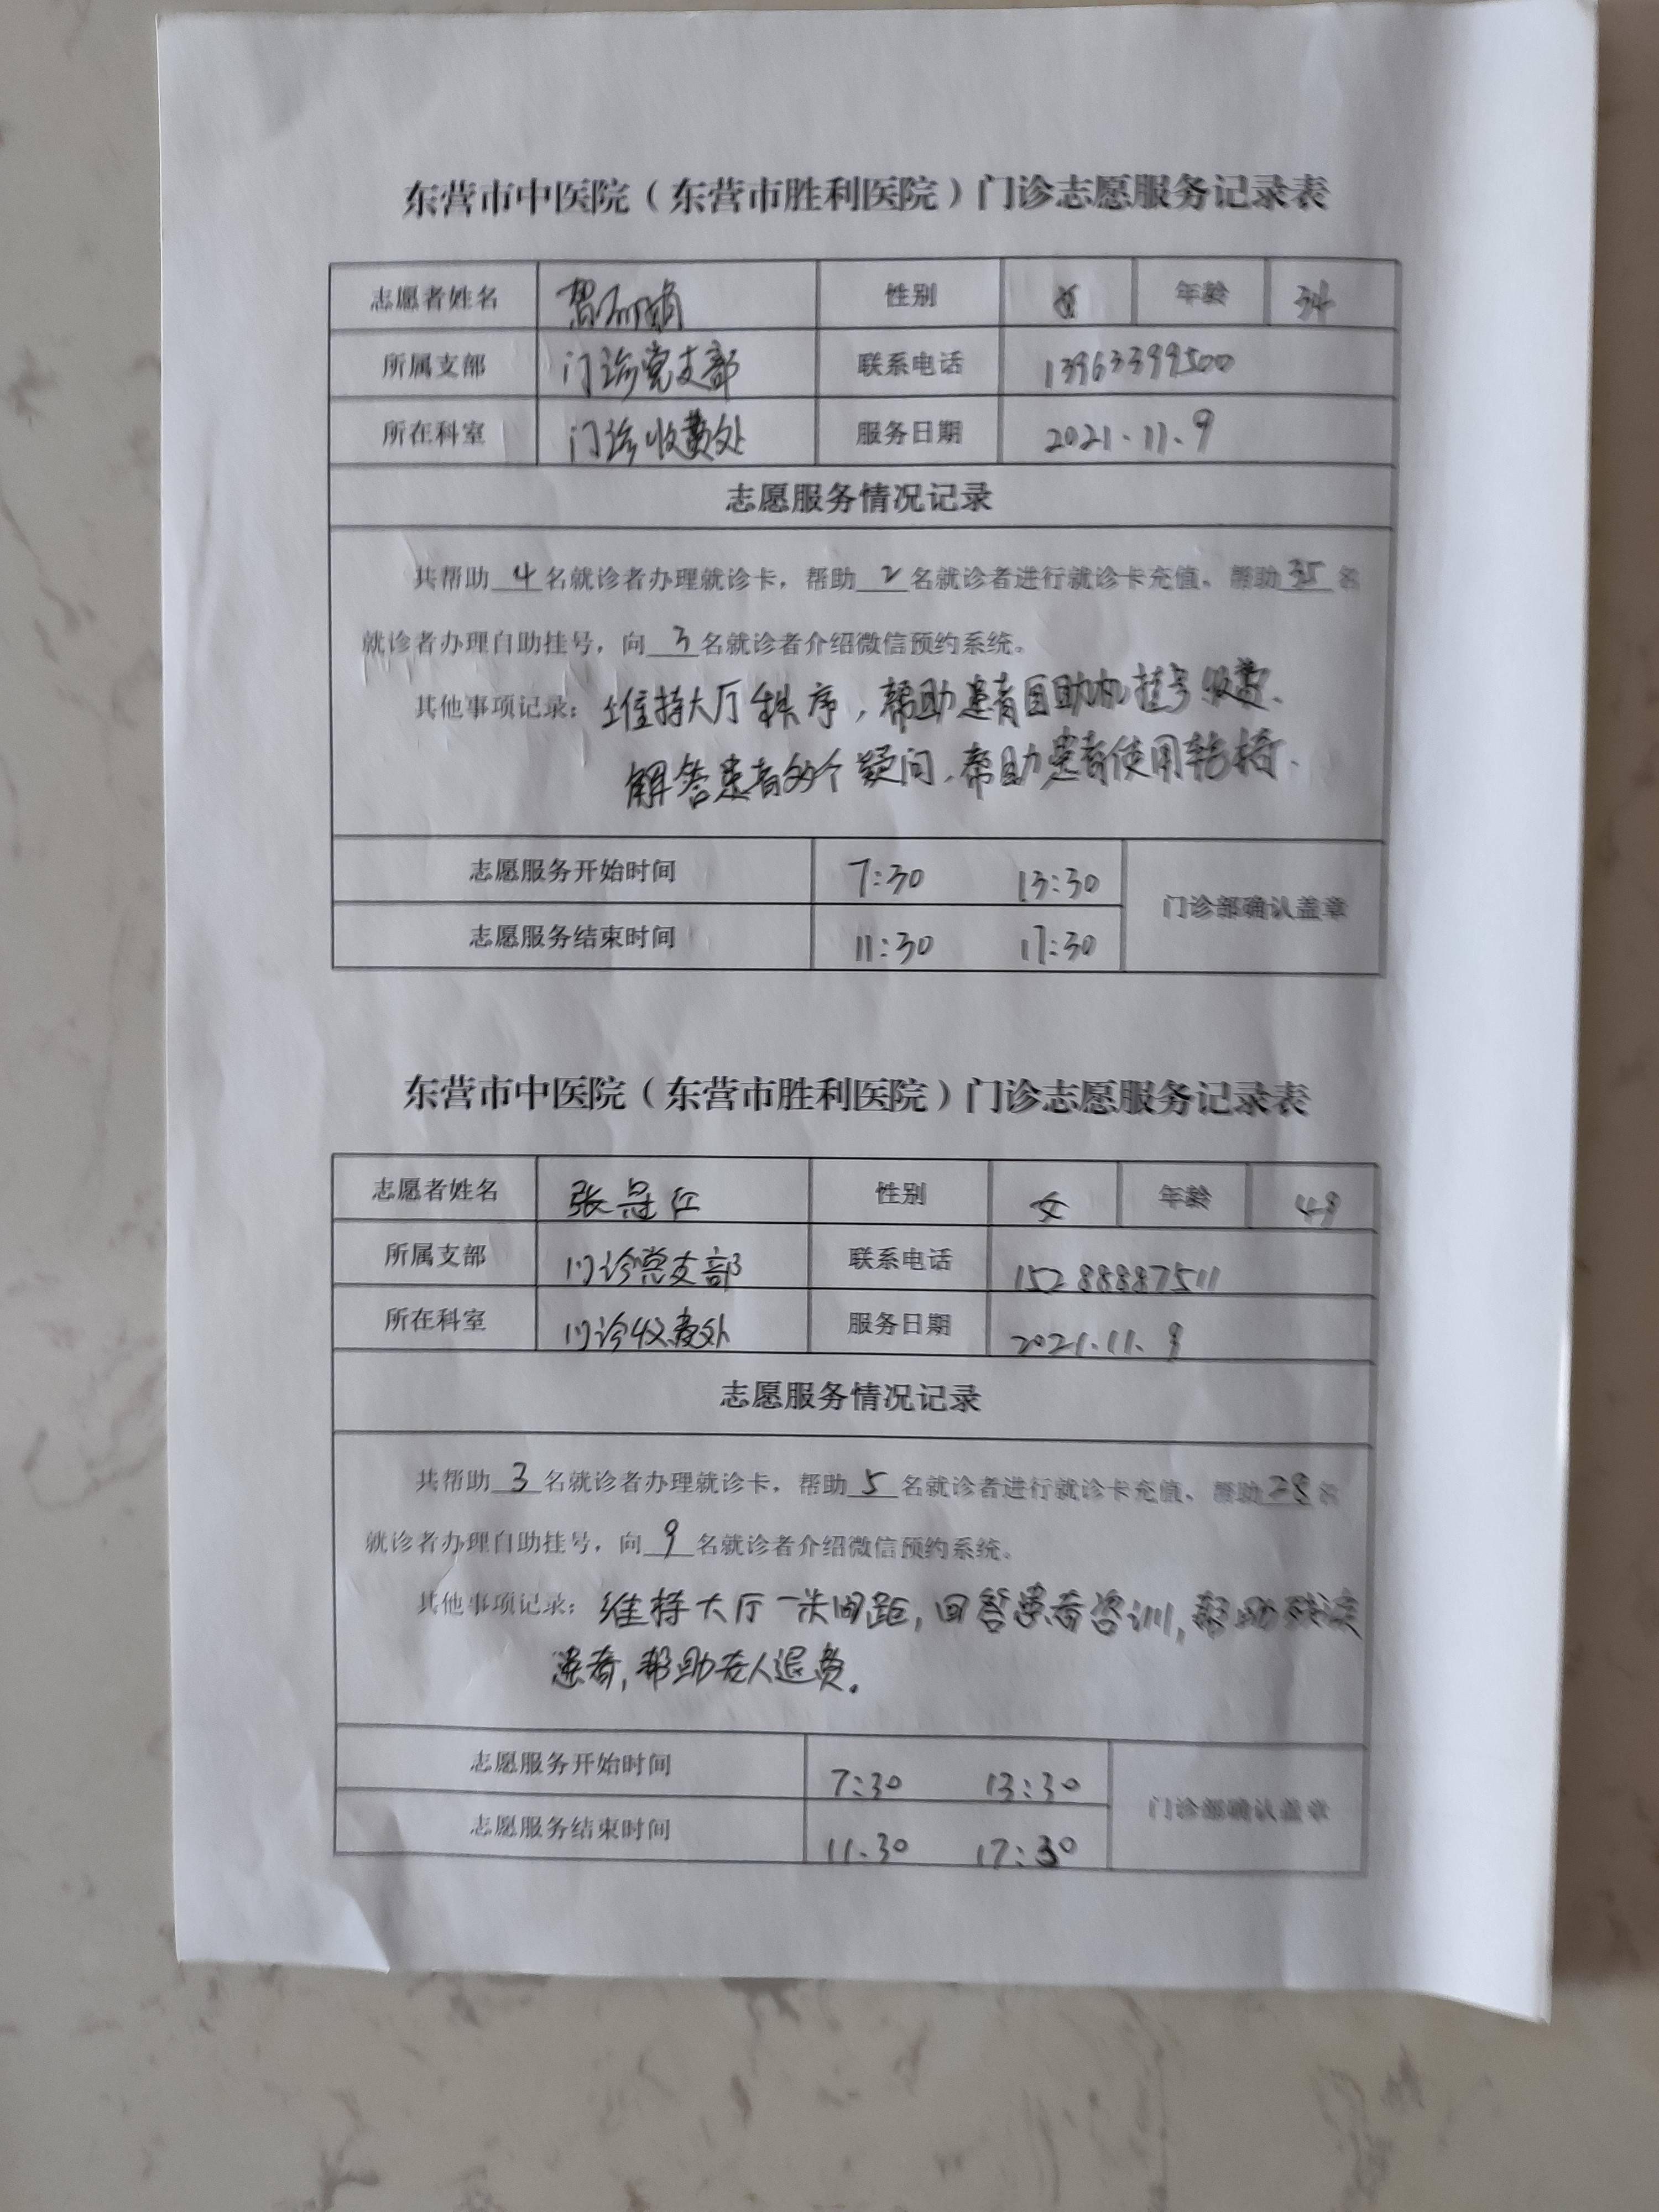 东营市中医院（东营市胜利医院）门诊志愿服务记录表
志愿者姓名 性别 女 年龄 34
所属支部 门诊党支部 联系电话 13963399500
所在科室 门诊收费处 服务日期 2021.11.9
志愿服务情况记录
共帮助4名就诊者办理就诊卡，帮助2名就诊者进行就诊卡充值，帮助35名
就诊者办理自助挂号，向3名就诊者介绍微信预约系统。
其他事项记录：维持大厅秩序，帮助患者自助机挂号收费、
解答患者各个疑问，帮助患者使用轮椅、
志愿服务开始时间 7:30 13:30
门诊部确认盖章
志愿服务结束时间 11:30 17:30
东营市中医院（东营市胜利医院）门诊志愿服务记录表
志愿者姓名 张 红 性别 女 年龄 49
所属支部 门诊党支部 联系电话 15288887511
所在科室 门诊收费处 服务日期 2021.11.9
志愿服务情况记录
共帮助3名就诊者办理就诊卡，帮助5名就诊者进行就诊卡充值，帮助28名
就诊者办理自助挂号，向9名就诊者介绍微信预约系统。
其他事项记录：维持大厅一米间距，回答患者咨训，帮助残疾
患者，帮助老人退费。
志愿服务开始时间 7:30 13:30
门诊部确认盖章
志愿服务结束时间 11.30 17:30